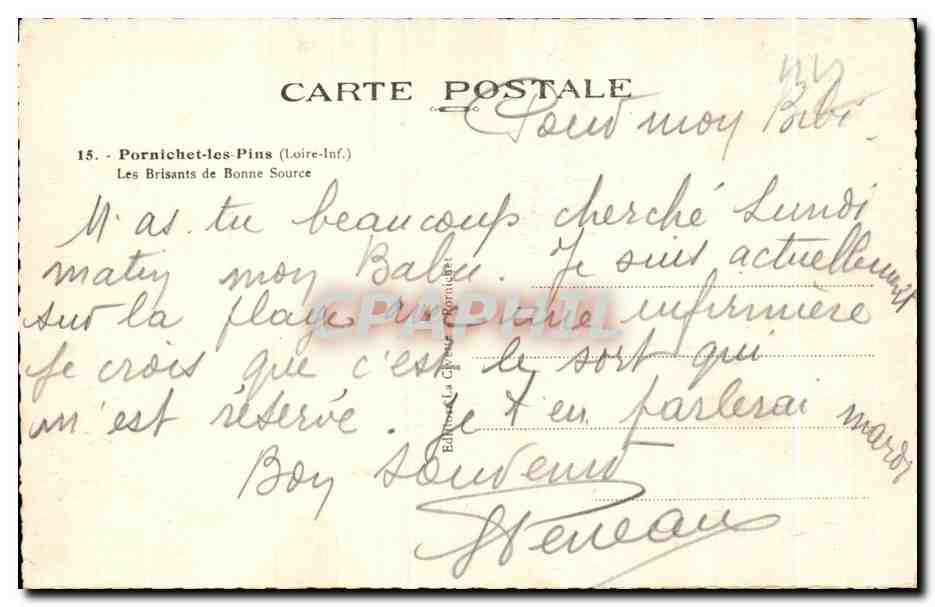 CARTE POSTALE
Pour moy Bibi.
15. - Pornichet-les-Pins (Loire-Inf.)
Les Brisants de Bonne Source
M'as. tu beaucoup cherché Lundi
matin moy . Je suis actuellement
sur la plage avec une infirmière
Je crois que c'est le sort qui
m'est réservé. Je t'en parlerai mardi
Boy souvenir
Editions La Civette Pornichet
CPAPHIL